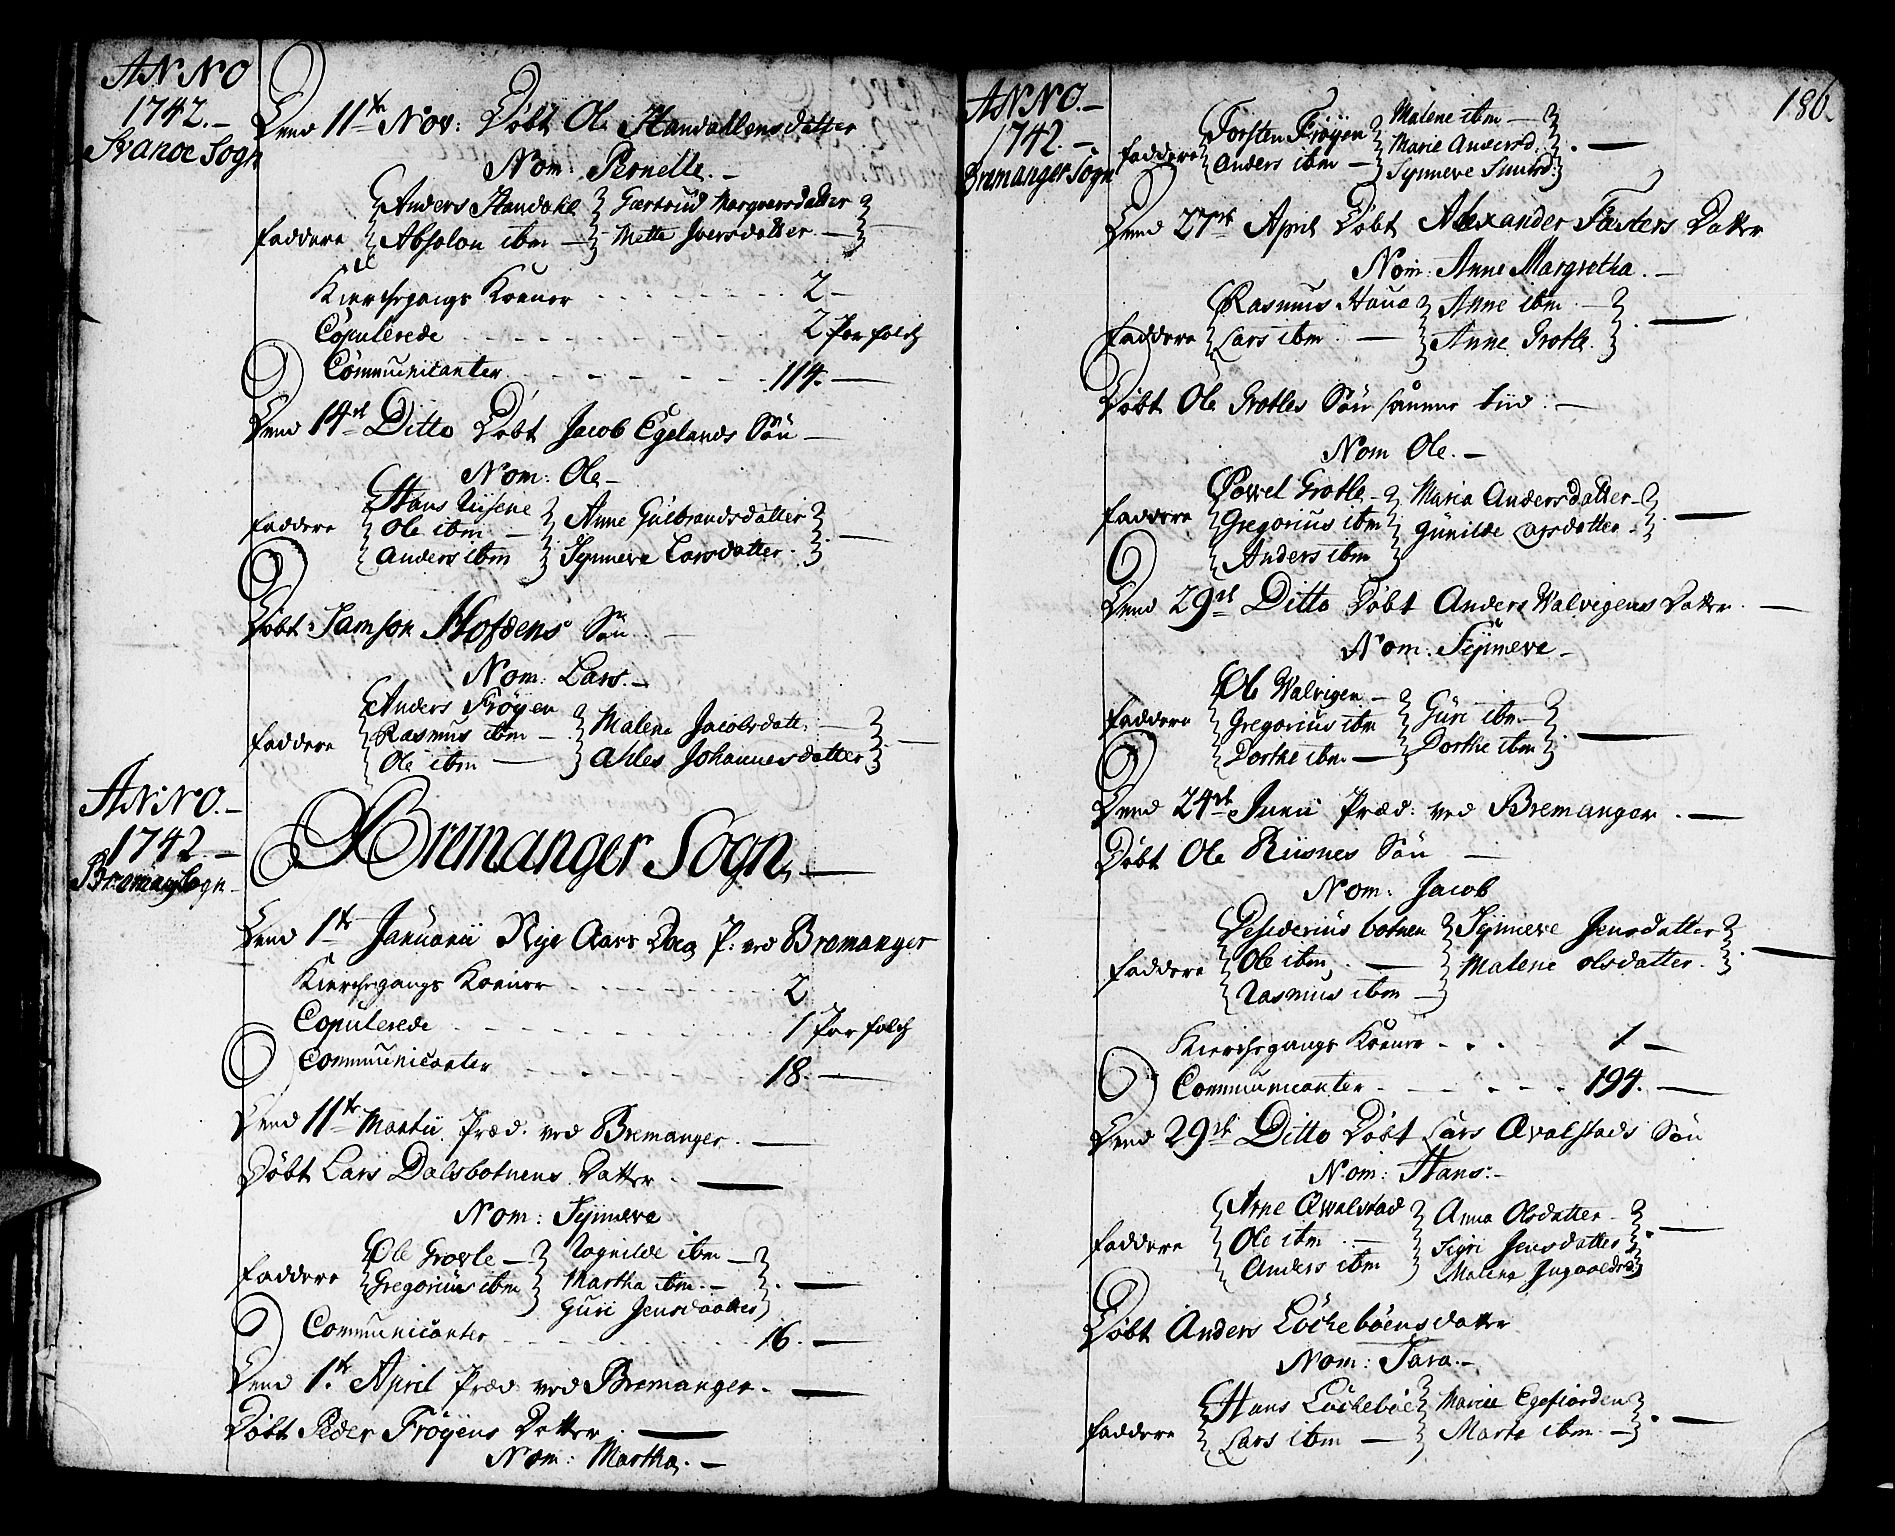 ANNO
1742.-
Svanoe Sogn
Dend 11te Nov: Døbt Ole Standahlens datter
Nom: Pernelle.-
Faddere
Anders Standahl
Absolon ibm —
Gertrud Margversdatter
Mette Iversdatter.—
Kierchegangs Koener - - - - - 2-
Copulerede - - - - - - 2 Par folch
Communicanter - - - - - 114.-
Dend 14de Ditto Døbt Jacob Egelands Søn —
Nom: Ole-
Faddere
Hans Liisene
Ole ibm —
Anders ibm
Anne Gulbrandsdatter
Synneve Larsdatter.
Døbt Samson Hofdens Søn. —
Nom: Lars.-
Faddere
Anders Frøyen
Rasmus ibm —
Ole ibm —
Malene Jacobsdatt. —
Ahles Johannesdatter
ANNO.-
1742.-
Bremang Sogn-
Bremanger Sogn.-
Dend 1te Januarii Nye Aars Dag P: ved Bremanger
Kierchegangs Koener - - - - - 2
Copulerede - - - - - - 1 Par folch
Communicanter - - - - - 18.-
Dend 11te Martii Præd. ved Bremanger. —
Døbt Lars Dalsbotnens Datter. —
Nom: Synneve
Faddere
Ole Grovle —
Gregorius ibm
Rognilde ibm —
Martha ibm. —
Guri Jensdaatter
Communicanter - - - - - 16.-
Dend 1te April Præd ved Bremanger. —
Døbt Peder Frøyens Datter. —
Nom: Martha.-
186.
ANNO.-
1742.-
Bremanger Sogn
Faddere
Torsten Frøyen
Anders ibm —
Malene ibm —
Marie Andersd.
Synneve Smihsd:
Dend 27de April Døbt Alexander Fæsters Datter
Nom: Anne Margretha.-
Faddere
Rasmus Hauge
Lars ibm. —
Anne ibm —
Anne Grotle.
Døbt Ole Grotles Søn samme tiid. —
Nom Ole.-
Faddere
Povel Grotle —
Gregorius ibm
Anders ibm
Maria Andersdatter —
Gunilde datter.
Dend 29de Ditto Døbt Anders Walvigens Datter. —
Nom: Synneve-
Faddere
Ole Walvigen —
Gregorius ibm
Dorthe ibm —
Guri ibm —
Dorthe ibm
Dend 24de Junii Præd: ved Bremanger. —
Døbt Ole Riisnes Søn —
Nom: Jacob
Faddere
Desiderius botnen
Ole ibm, —
Rasmus ibm —
Synneve Jensdatter
Malene olsdatter.
Kierchegangs Koener - - - 1 -
Communicanter - - - - - 194.-
Dend 29de Ditto Døbt Lars Qvalstads Søn
Nom: Hans:-
Faddere
Arne Qvalstad
Ole ibm. —
Anders ibm
Anna Olsdatter —
Sigri Jensdatter
Malena Ingvaldsd
Døbt Anders Löcheböens datter
Nom: Sara.-
Faddere
Hans Löcheböe
Lars ibm —
Marie Egefiorden
Marte ibm. —